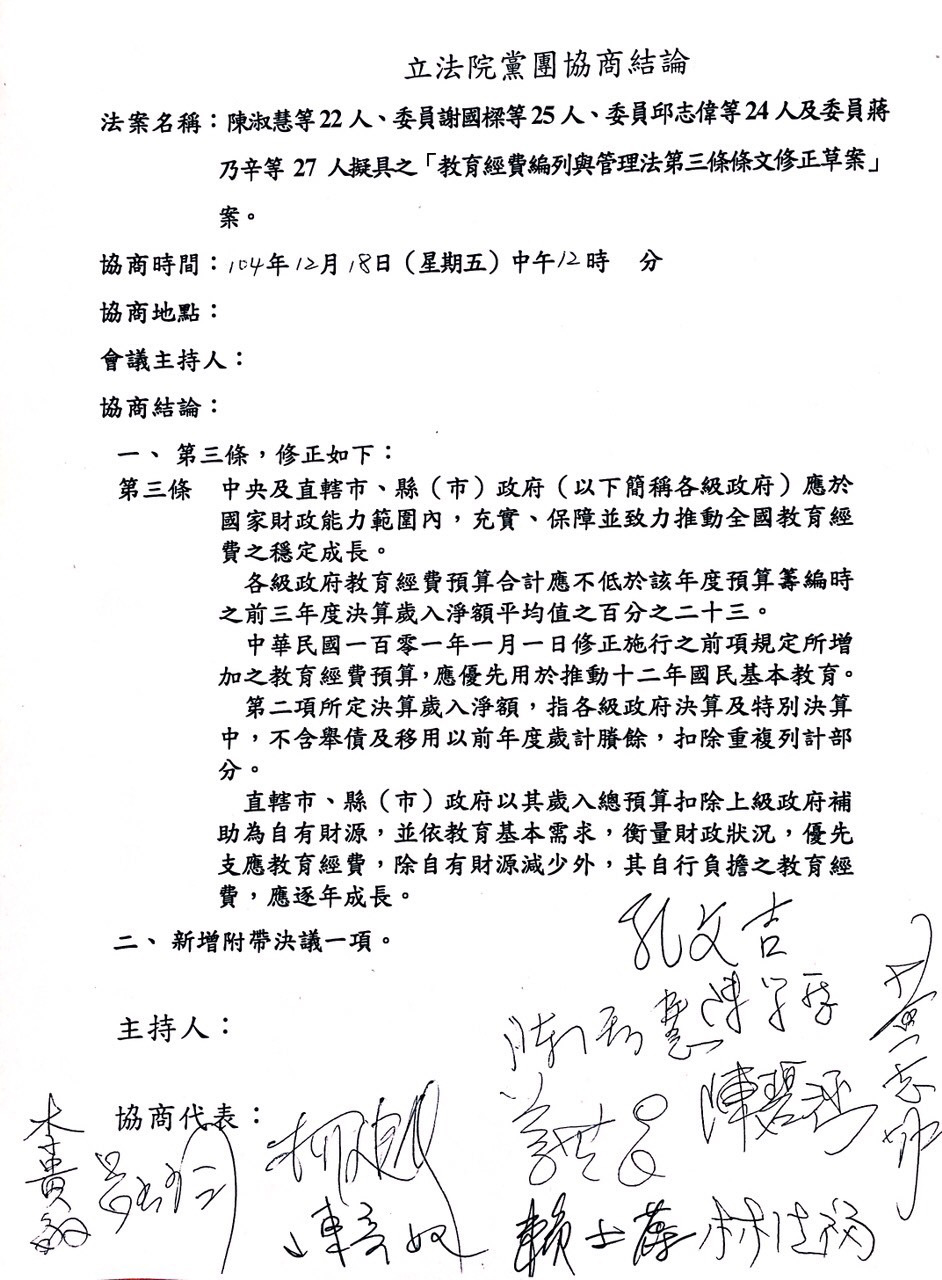 立法院黨團協商結論
法案名稱：陳淑慧等22人、委員謝國樑等25人、委員邱志偉等24人及委員蔣
乃辛等 27 人擬具之「教育經費編列與管理法第三條條文修正草案」
案。
協商時間：104年12月18日（星期五）中午12時 分
協商地點：
會議主持人：
協商結論：
一、 第三條，修正如下：
第三條 中央及直轄市、縣（市）政府（以下簡稱各級政府）應於
國家財政能力範圍內，充實、保障並致力推動全國教育經
費之穩定成長。
各級政府教育經費預算合計應不低於該年度預算籌編時
之前三年度決算歲入淨額平均值之百分之二十三。
中華民國一百零一年一月一日修正施行之前項規定所增
加之教育經費預算，應優先用於推動十二年國民基本教育。
第二項所定決算歲入淨額，指各級政府決算及特別決算
中，不含舉債及移用以前年度歲計賸餘，扣除重複列計部
分。
直轄市、縣（市）政府以其歲入總預算扣除上級政府補
助為自有財源，並依教育基本需求，衡量財政狀況，優先
支應教育經費，除自有財源減少外，其自行負擔之教育經
費，應逐年成長。
二、 新增附帶決議一項。
孔文吉
主持人：
陳淑慧
陳學聖
協商代表：
陳碧涵
李貴敏
柯建銘
陳亭妃
賴士葆
林佳龍